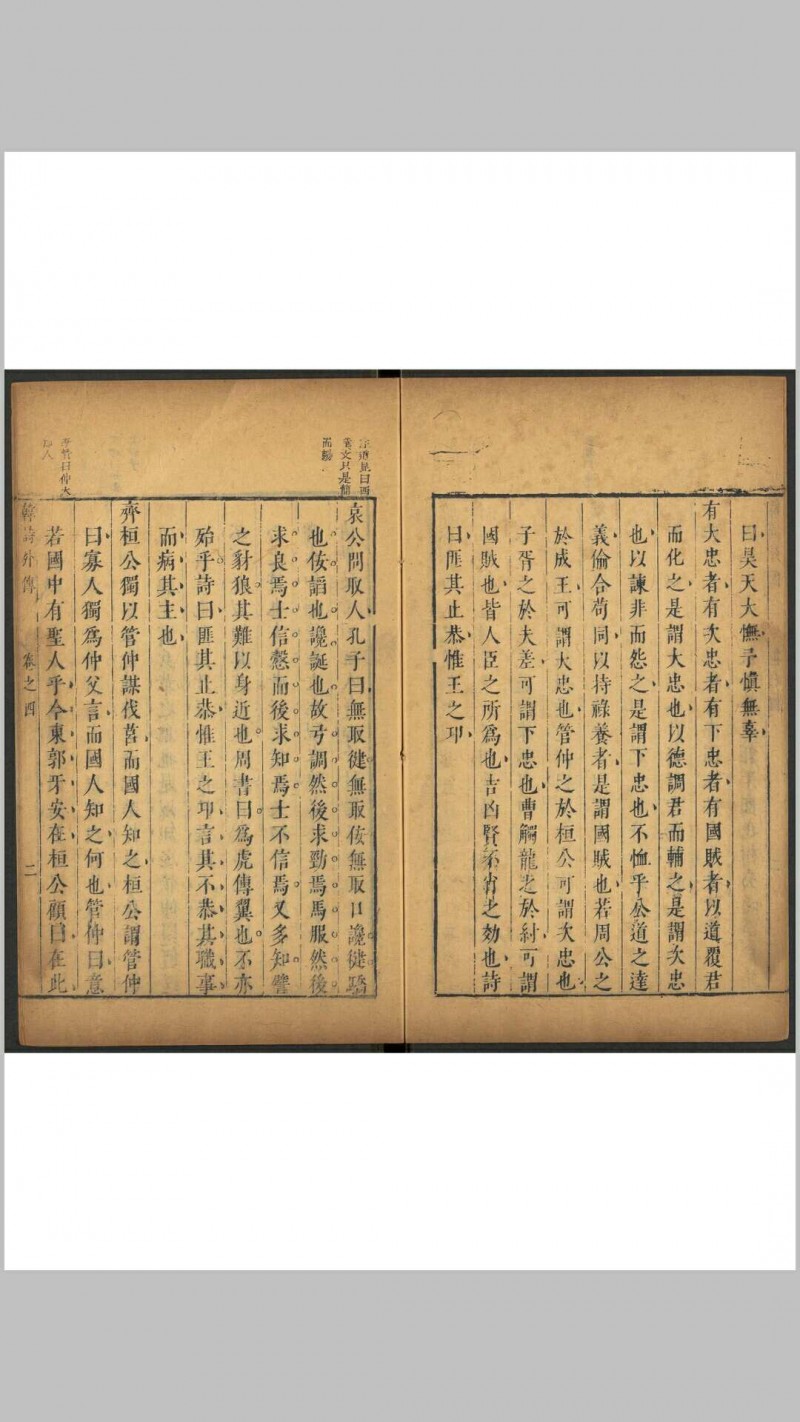 曰昊天大憮予慎無辜
有大忠者有次忠者有下忠者有國賊者以道覆君
而化之是謂大忠也以德調君而輔之是謂次忠
也以諫非而怨之是謂下忠也不恤乎公道之達
義偷合苟同以持祿養者是謂國賊也若周公之
於成王可謂大忠也管仲之於桓公可謂次忠也
子胥之於夫差可謂下忠也曹觸龍之於紂可謂
國賊也皆人臣之所為也吉凶賢不肖之効也詩
曰匪其止恭惟王之邛
曰
而
哀公問取人孔子曰無取健無取佞無取口讒健驕
也佞諂也讒誕也故弓調然後求勁焉馬服然後
求良焉士信愨而後求知焉士不信焉又多知譬
之豺狼其難以身近也周書曰為虎傅翼也不亦
殆乎詩曰匪其止恭惟王之邛言其不恭其職事
而病其主也
齊桓公獨以管仲謀伐莒而國人知之桓公謂管仲
曰寡人獨為仲父言而國人知之何也管仲曰意
若國中有聖人乎今東郭牙安在桓公顧曰在此
韓詩外傳 卷之四 二